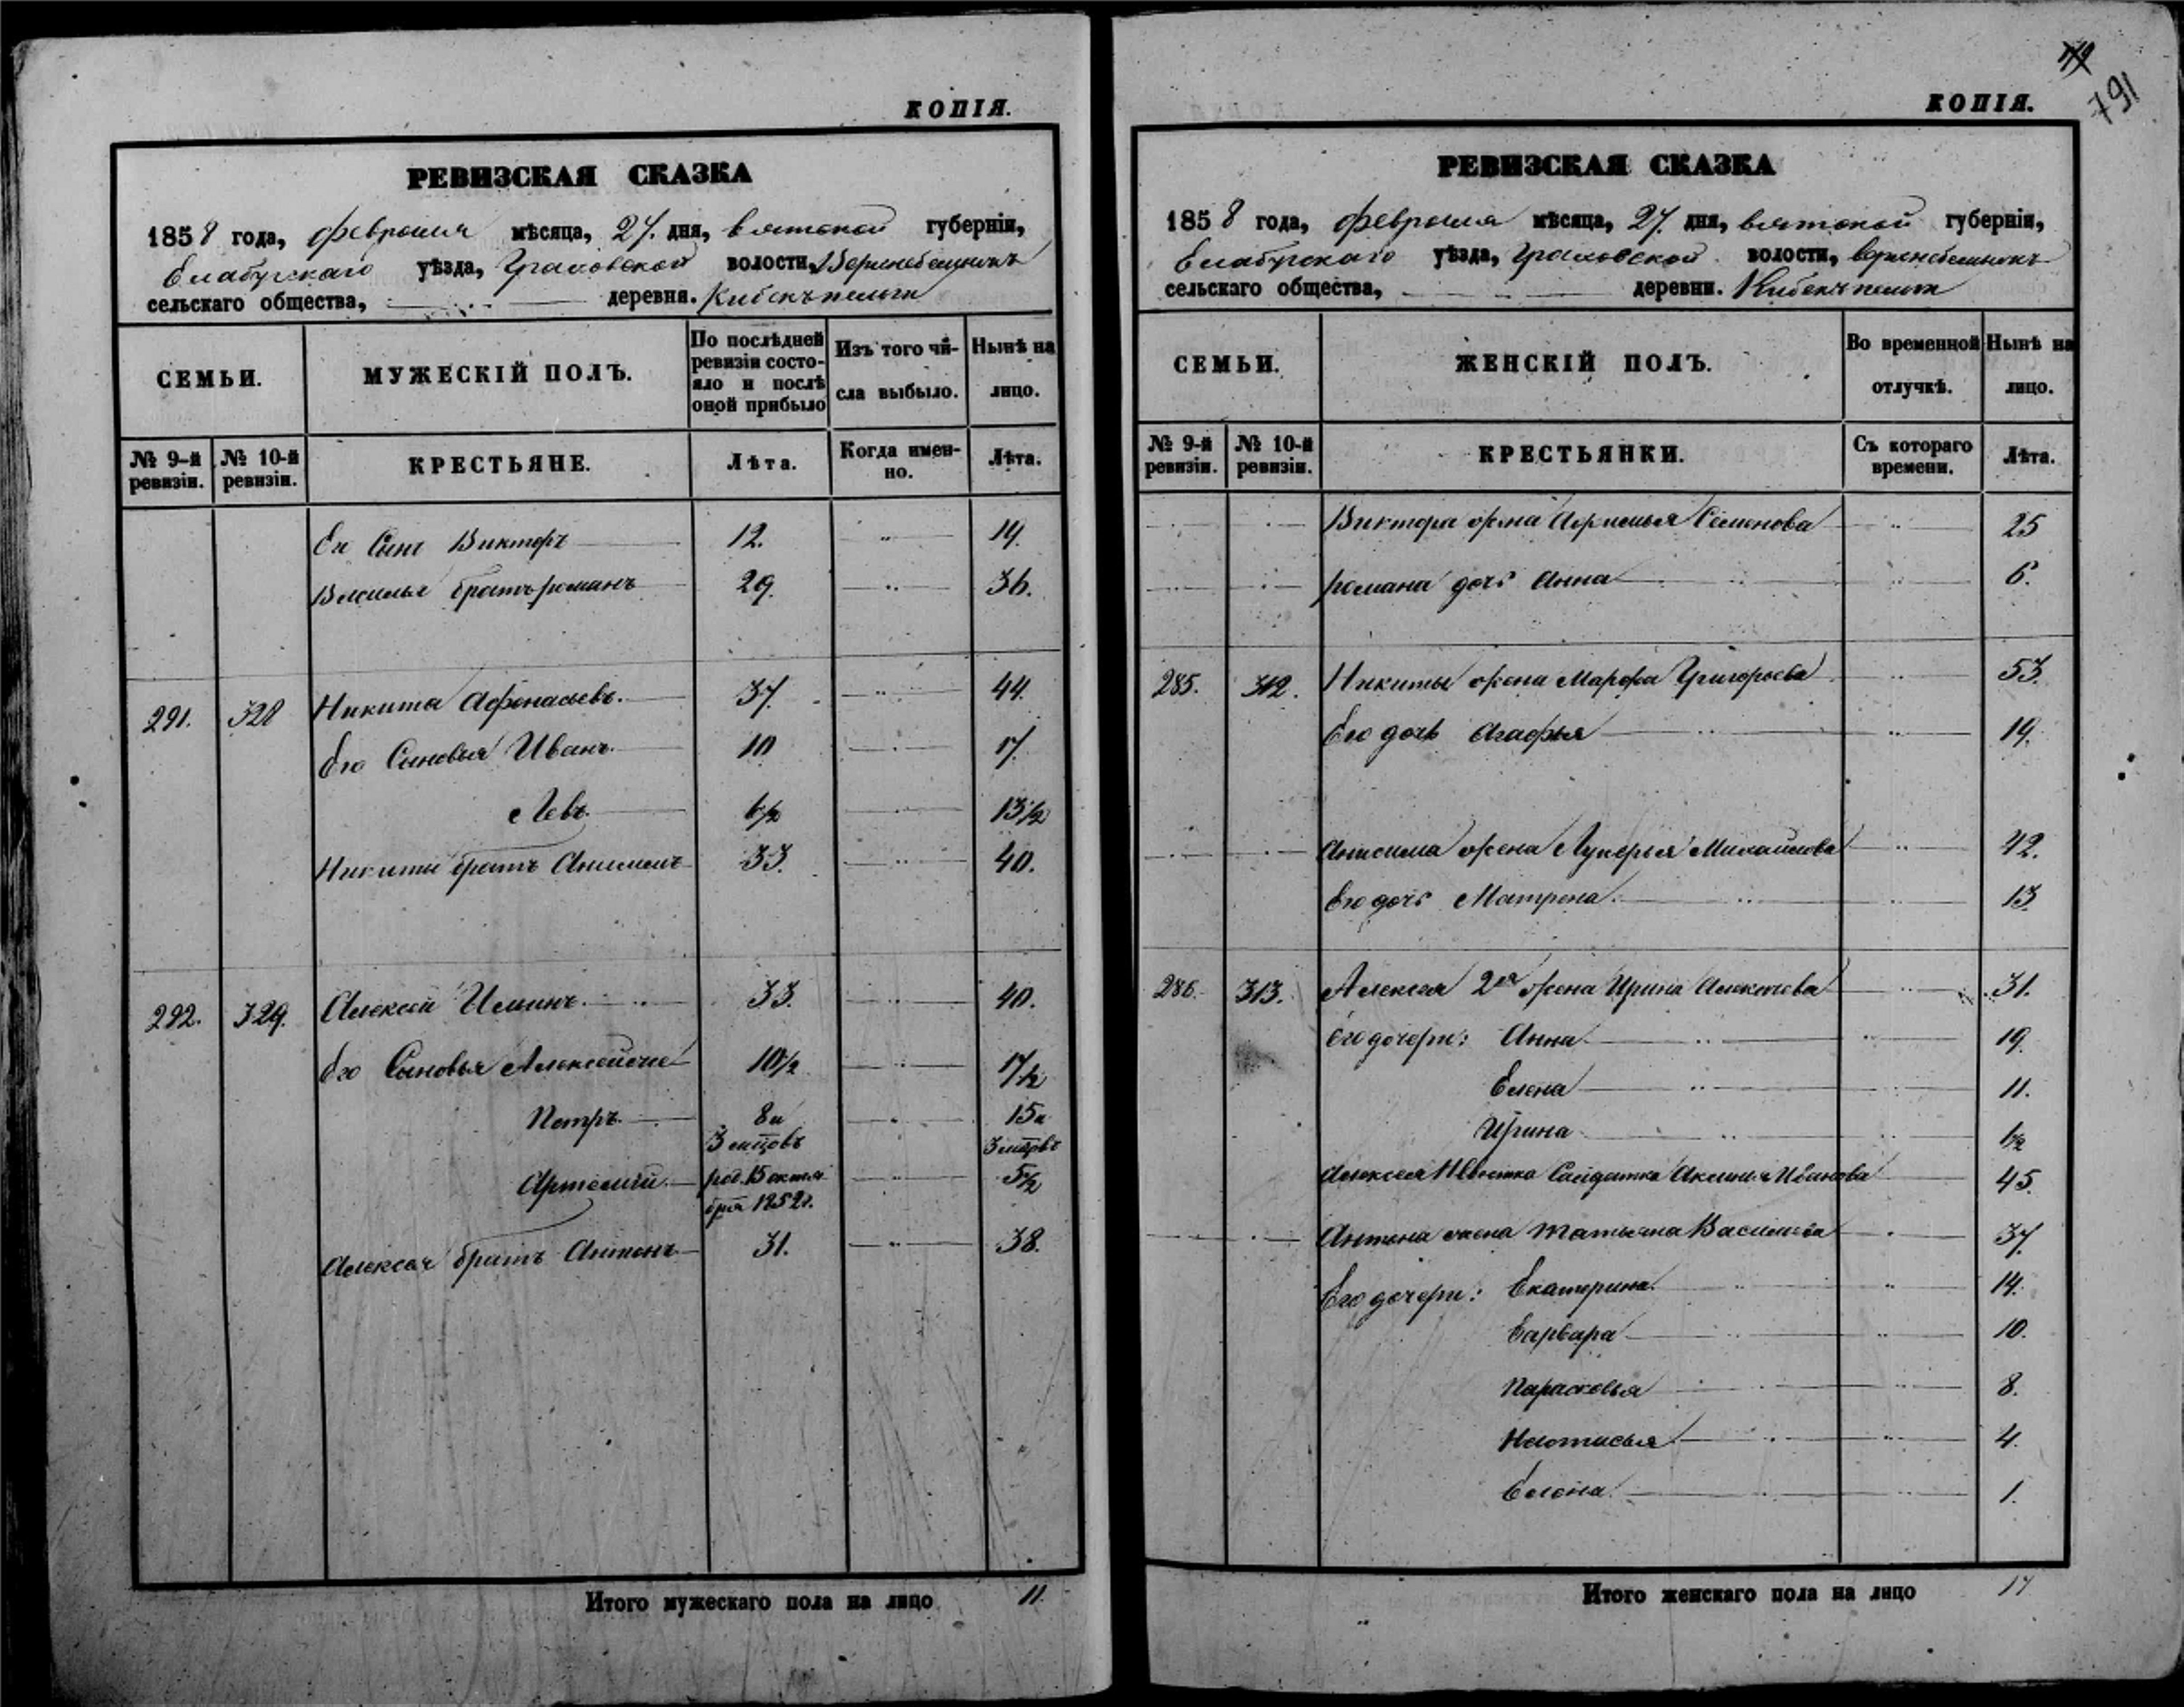 КОПІЯ.
РЕВИЗСКАЯ СКАЗКА
1858 года, февраля мѣсяца, 27. дня, вятской губерніи,
Елабугскаго уѣзда, Граховской волости,
сельскаго общества, деревни.
СЕМЬИ.
МУЖЕСКІЙ ПОЛЪ.
По послѣдней ревизіи состояло и послѣ оной прибыло
Изъ того числа выбыло.
Нынѣ на лицо.
№ 9-й ревизіи.
№ 10-й ревизіи.
КРЕСТЬЯНЕ.
Лѣта.
Когда именно.
Лѣта.
Ег Сынъ Викторъ 12. 19.
Василья братъ романъ 29. 36.
291. 328 Никита Афонасьевъ. 37. 44.
Его Сыновья Иванъ. 10 17.
Левъ. 6½ 13½
Никиты братъ Анисимъ 33. 40.
292. 329. Алексей Ильинъ. 33. 40.
Его Сыновья 10½ 17½
Петръ. 8 и 15 и
3 мцовъ 3 мцовъ
Артемий род. 15 октя- 5½
бря 1852 г.
Алексея братъ Антонъ 31. 38.
Итого мужескаго пола на лицо 11.
791
КОПІЯ.
РЕВИЗСКАЯ СКАЗКА
1858 года, февраля мѣсяца, 27. дня, вятской губерніи,
Елабугскаго уѣзда, Граховской волости,
сельскаго общества, деревни.
СЕМЬИ.
ЖЕНСКІЙ ПОЛЪ.
Во временной отлучкѣ.
Нынѣ на лицо.
№ 9-й ревизіи.
№ 10-й ревизіи.
КРЕСТЬЯНКИ.
Съ котораго времени.
Лѣта.
Виктора жена Семенова 25
романа дочь Анна 6.
285. 312. Никиты жена Марфа Григорьева 53.
Его дочь Агафья 19.
Анисима жена Лукерья Михайлова 42.
Его дочь Матрена. 13.
286. 313. Алексея 2ая жена Ирина Алексеева 31.
Его дочери: Анна 19.
Елена 11.
Ирина 1½
Алексея Невестка Салдатка Акулина Иванова 45.
Антона жена Татьяна Васильева 37.
Его дочери: Екатерина. 14.
Варвара 10.
Парасковья 8.
Настасья 4.
Елена 1.
Итого женскаго пола на лицо 17